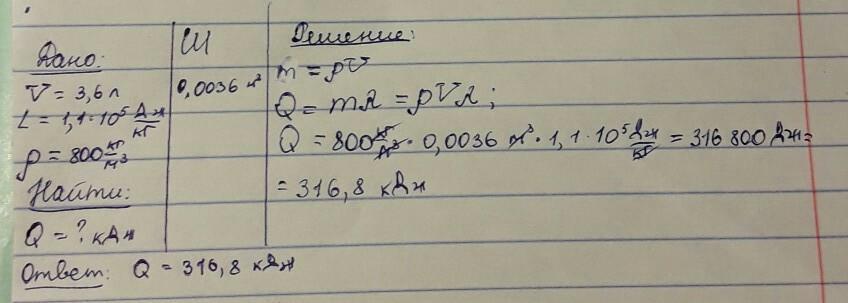 Дано:
V = 3,6 л
L = 1,1·10⁵ Дж/кг
ρ = 800 кг/м³
Найти:
Q = ? кДж
СИ
0,0036 м³
Решение:
m = ρV
Q = mλ = ρVλ;
Q = 800 кг/м³ · 0,0036 м³ · 1,1·10⁵ Дж/кг = 316 800 Дж =
= 316,8 кДж
Ответ: Q = 316,8 кДж